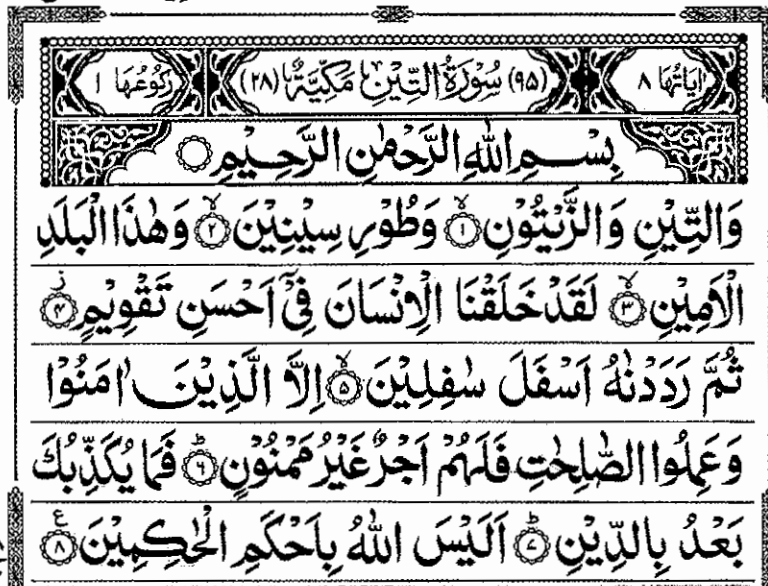 اٰیَاتُهَا ٨ (٩٥) سُوْرَةُ التِّیْنِ مَكِّیَّةٌ (٢٨) رُكُوْعُهَا ١
بِسْمِ اللّٰهِ الرَّحْمٰنِ الرَّحِیْمِ
وَالتِّیْنِ وَالزَّیْتُوْنِ ۙ‏﴿١﴾ وَطُوْرِ سِیْنِیْنَ ۙ‏﴿٢﴾ وَهٰذَا الْبَلَدِ
الْاَمِیْنِ ۙ‏﴿٣﴾ لَقَدْ خَلَقْنَا الْاِنْسَانَ فِیْۤ اَحْسَنِ تَقْوِیْمٍ ز﴿۴﴾
ثُمَّ رَدَدْنٰهُ اَسْفَلَ سٰفِلِیْنَ ۙ‏﴿۵﴾ اِلَّا الَّذِیْنَ اٰمَنُوْا
وَعَمِلُوا الصّٰلِحٰتِ فَلَهُمْ اَجْرٌ غَیْرُ مَمْنُوْنٍ ؕ‏﴿۶﴾ فَمَا یُكَذِّبُكَ
بَعْدُ بِالدِّیْنِ ؕ‏﴿٧﴾ اَلَیْسَ اللّٰهُ بِاَحْكَمِ الْحٰكِمِیْنَ ع﴿٨﴾